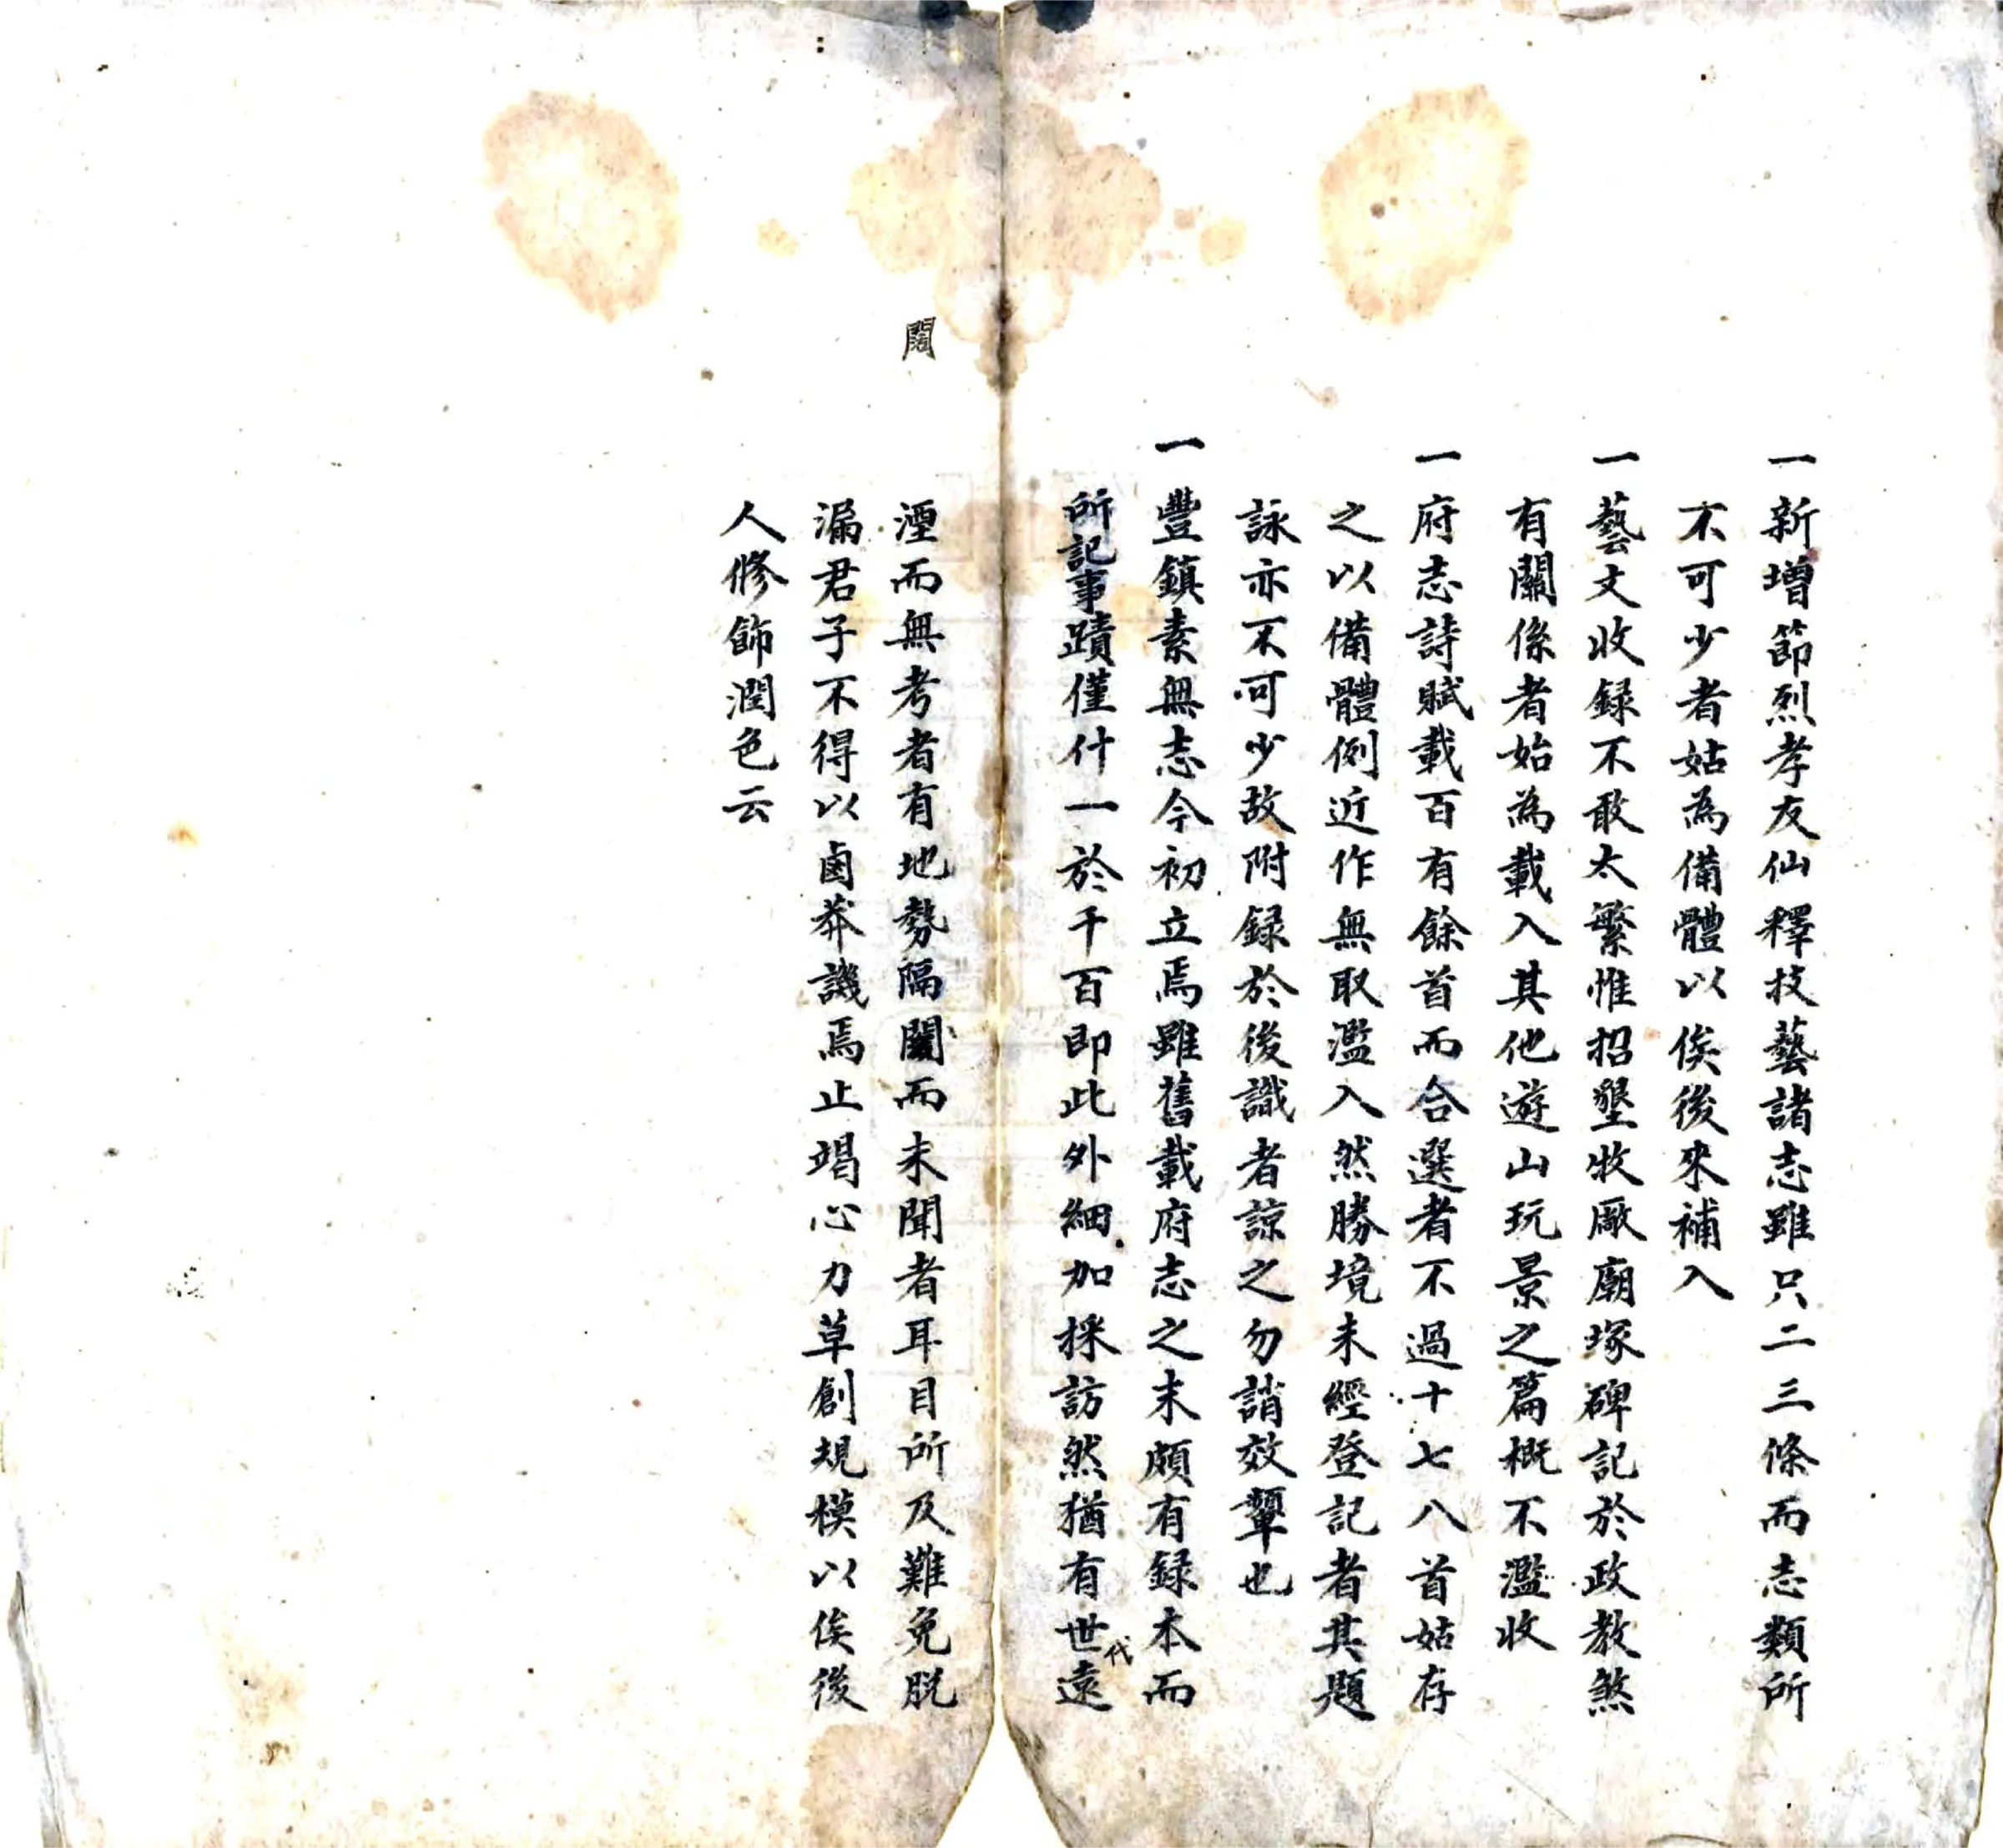 一新增節烈孝友仙釋技藝諸志雖只二三條而志類所
不可少者姑為備體以俟後來補入
一藝文收録不敢太繁惟招墾牧厰廟塚碑記於政教煞
有關係者始為載入其他遊山玩景之篇概不濫收
一府志詩賦載百有餘首而合選者不過十七八首姑存
之以備體例近作無取濫入然勝境未經登記者其題
詠亦不可少故附録於後識者諒之勿誚效顰也
一豐鎮素無志今初立焉雖舊載府志之末頗有録本而
所記事蹟僅什一於千百即此外細加採訪然猶有世代遠
湮而無考者有地勢隔闊而未聞者耳目所及難免脱
闊
漏君子不得以鹵莽譏焉止竭心力草創規模以俟後
人修飾潤色云